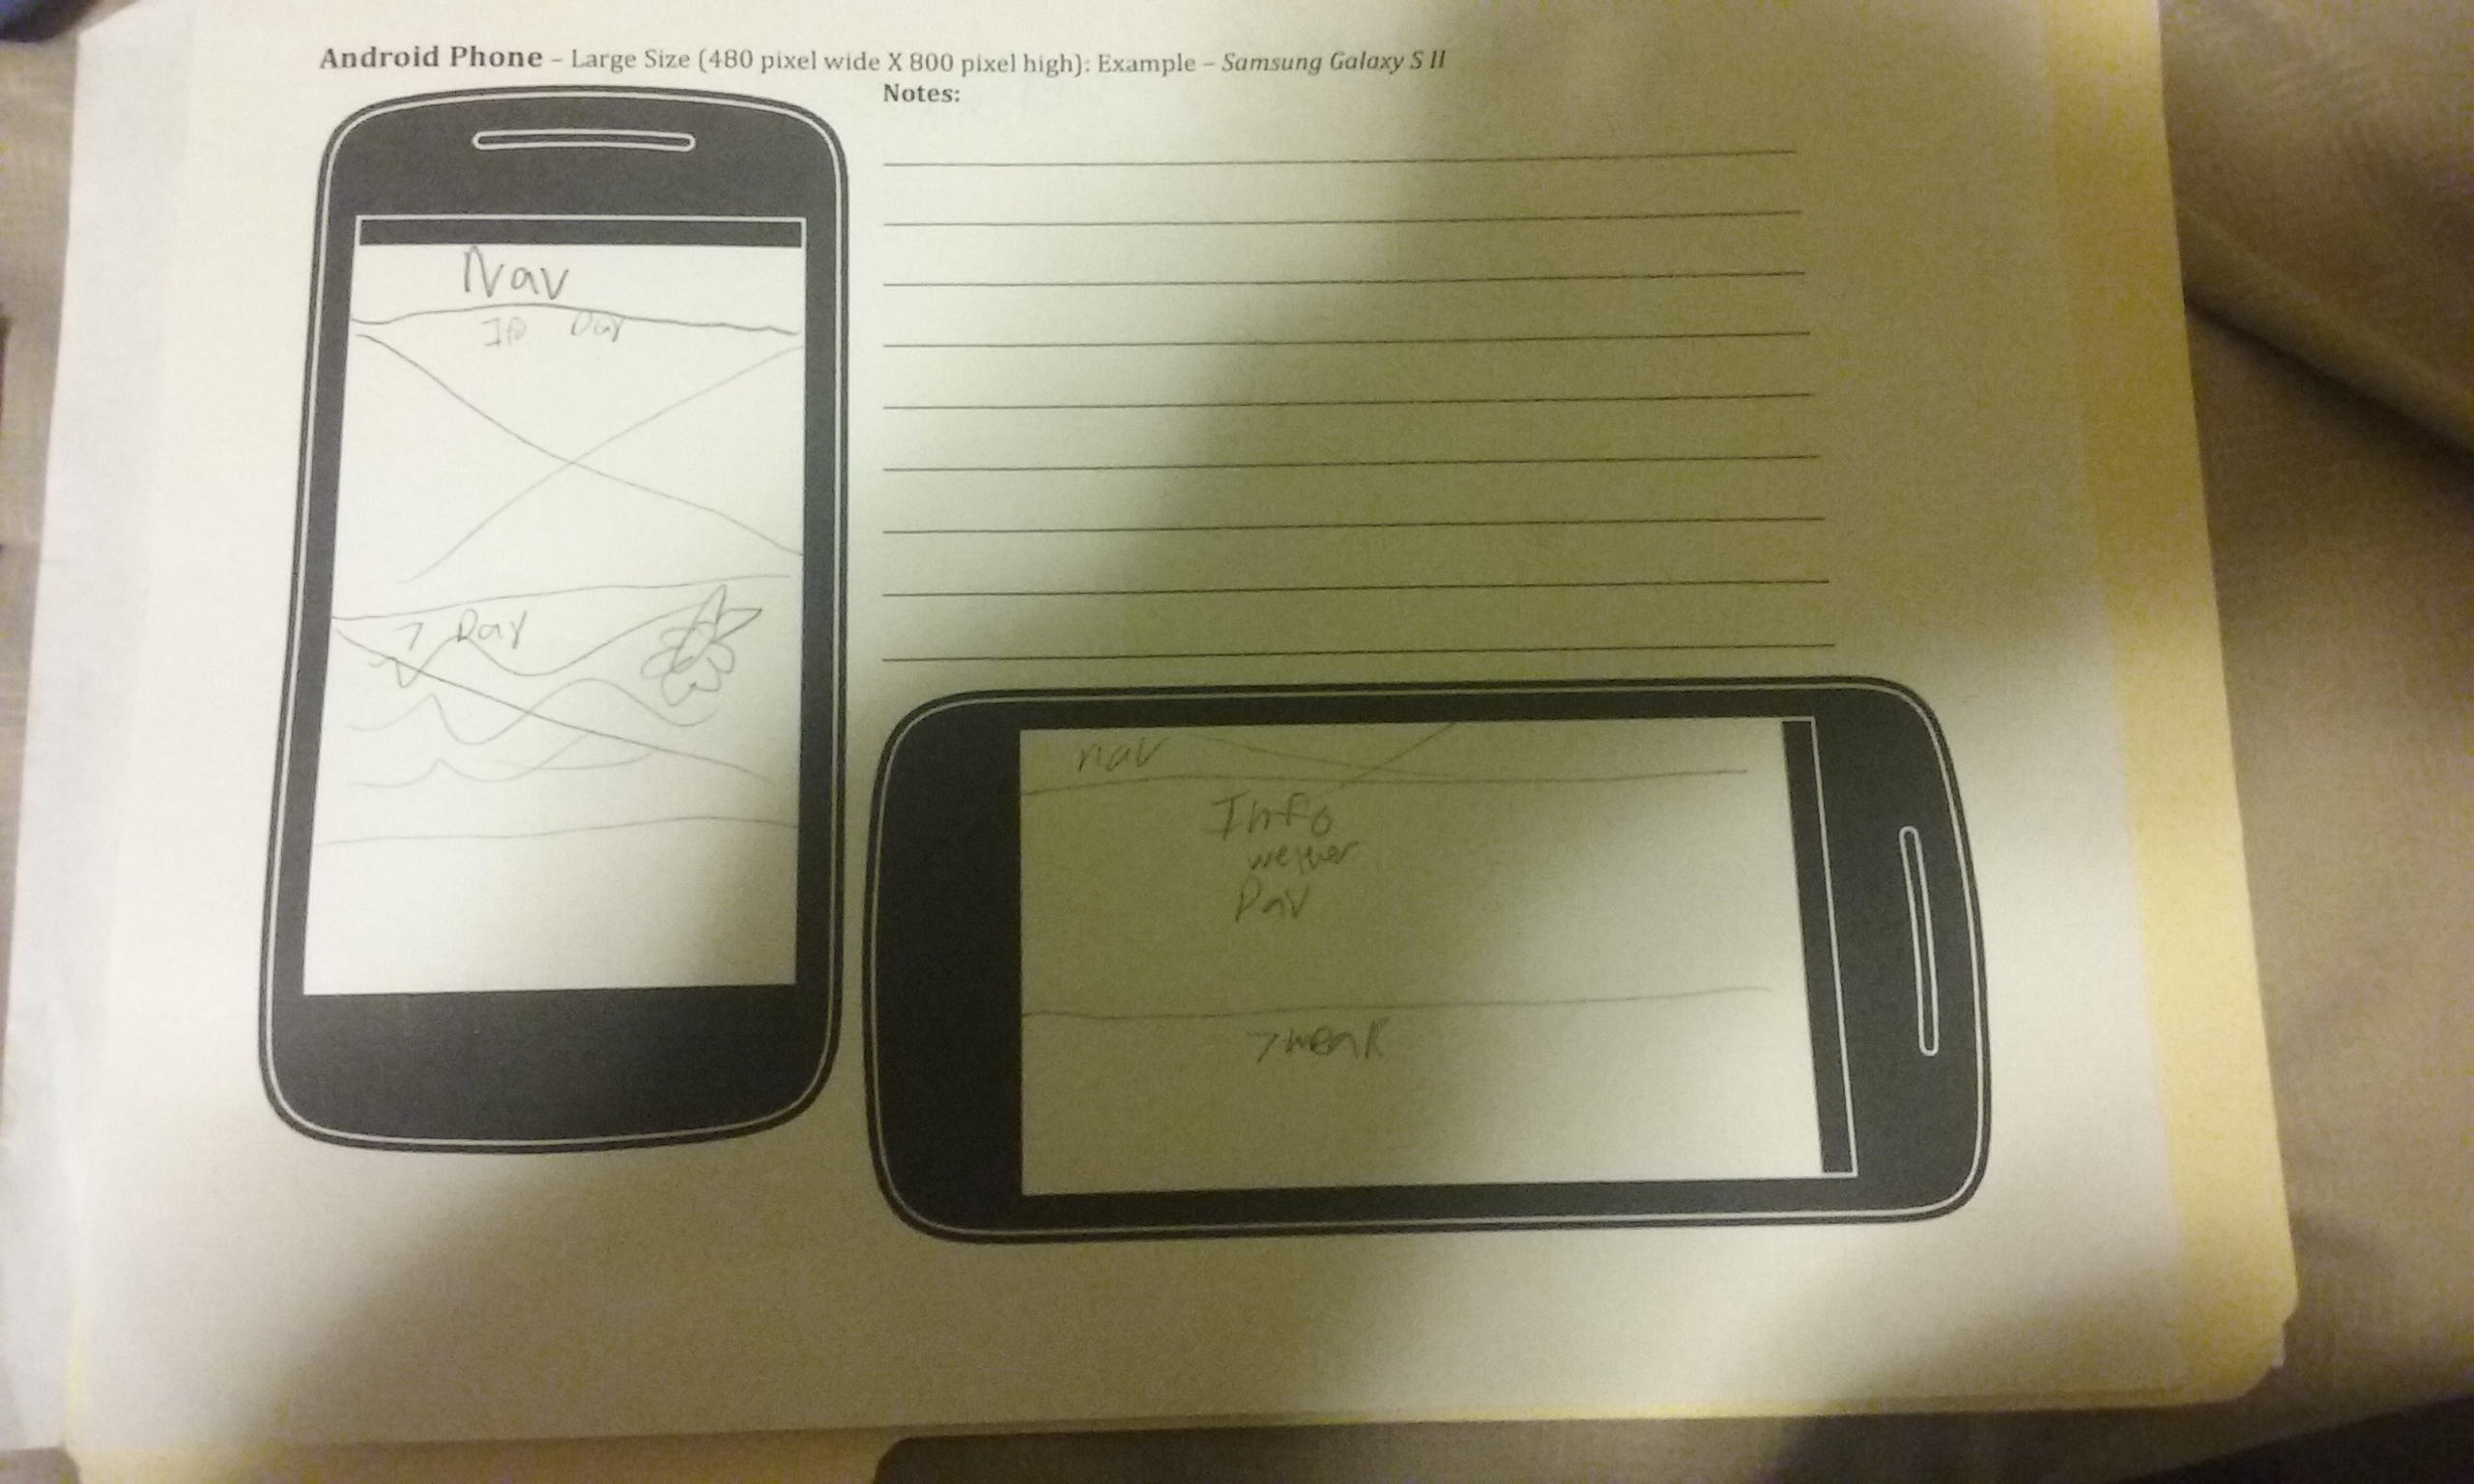 Android Phone – Large Size (480 pixel wide X 800 pixel high): Example – Samsung Galaxy S II
Notes:
Nav
Day
7 Day
nav
Info
Day